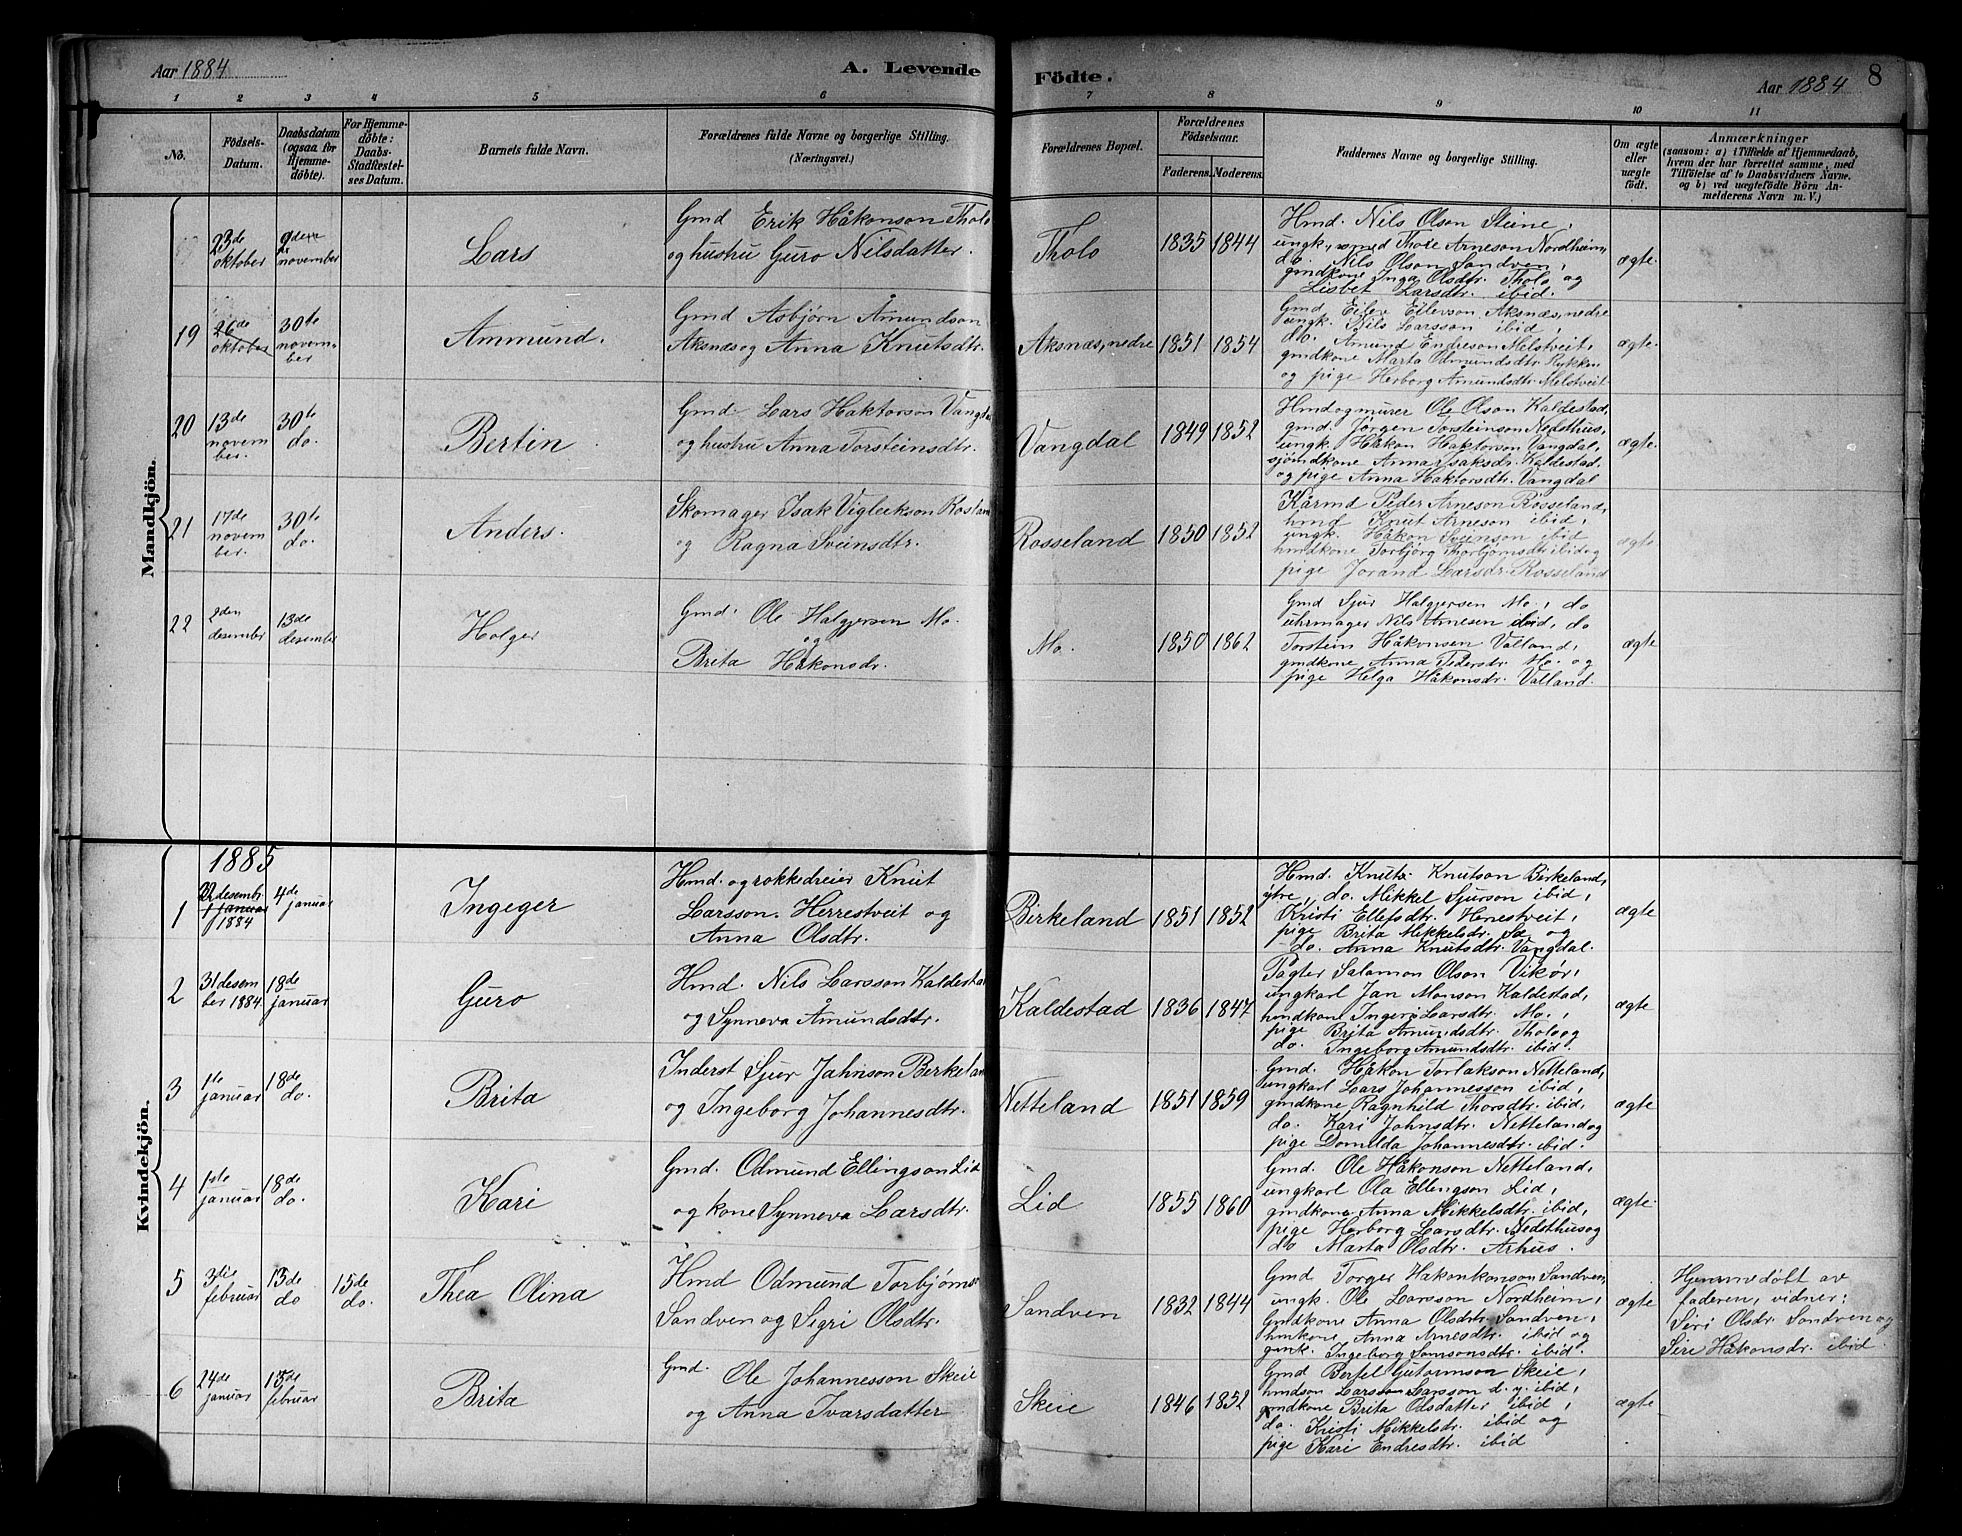 Aar 1884
A. Levende
Födte.
Aar 1884
8
1 2 3 4 5 6 7 8 9 10 11
No.
Födsels-
Datum.
Daabsdatum
(ogsaa for
Hjemme-
döbte).
For Hjemme-
döbte:
Daabs-
Stadfæstel-
ses Datum.
Barnets fulde Navn.
Forældrenes fulde Navne og borgerlige Stilling.
(Næringsvei.)
Forældrenes Bopæl.
Forældrenes
Födselsaar.
Faderens. Moderens.
Faddernes Navne og borgerlige Stilling.
Om ægte
eller
uægte
födt.
Anmærkninger
(saasom: a) i Tilfælde af Hjemmedaab,
hvem der har forrettet samme, med
Tilföielse af to Daabsvidners Navne.
og b) ved uægtefödte Börn An-
melderens Navn m. V.)
Mandkjön.
23de
oktober
november
Lars
Gmd Erik Håkonson Tholo
og hustru Guro Nilsdatter.
Tholo
1835 1844
Hmd. Nils Olson Steine,
ungk, smed Thole Arneson Nordheim,
do. Nils Olson Sandven,
gmdkone Inga Olsdtr. Tholo og
Lisbet Larsdtr. ibid.
ægte.
19
26de
oktober
30te
novem-
ber
Ammund.
Gmd Asbjörn Åmundson
Aksnæs og Anna Knutsdtr.
Aksnæs, nedre
1851 1854
Gmd Eilev Eilevson Aksnæs, nedre
ungk. Nils Larsson ibid,
do. Amund Endreson Melstveit,
gmdkone Marta Odmundsdtr Rykken
og pige Herborg Amundsdtr Melstveit
ægte.
20
13de
novem
ber.
30te
do.
Bertin
Gmd. Lars Haktorson Vangdal
og hustru Anna Torsteinsdtr.
Vangdal
1849 1852
Hmd og murer Ole Olson Kaldestad,
gmd. Jörgen Torsteinson Nedsthus,
ungk. Håkon Haktorson Vangdal,
sjömdkone Anna Isaksdr. Kaldestad,
og pige Anna Haktorsdtr. Vangdal
ægte.
21
17de
novem
ber.
30te
do.
Anders.
Skomager Isak Vigleikson
og Ragna Sveinsdtr.
Rosseland
1850 1852
Kårmd Peder Arneson Rosseland,
hmd Knut Arneson ibid,
ungk. Håkon Sveinson ibid
hmdkone Torbjörg Thorbjörnsdtr ibid og
pige Jorand Larsdr. Rosseland
ægte
22
2den
desember
13de
desember
Holger
Gmd. Ole Halgjersen Mo.
og
Brita Håkonsdr.
Mo.
1850 1862
Gmd Sjur Halgjersen Mo, do
uhrmager Nils Arnesen ibid, do
Torstein Håkonsen Valland,
gmdkone Anna Pedersdr. Mo. og
pige Helga Håkonsdr. Valland.
ægte
Kvindekjön.
1885
1
22 desemb.
1 januar
1884
4de
januar
Ingeger
Hmd. og rokkedreier Knut
Larsson. Herrestveit og
Anna Olsdtr.
Birkeland
1851 1852
Hmd. Knut Knutson Birkeland,
ytre, do. Mikkel Sjurson ibid,
Kristi Ellefsdtr. Herrestveit,
pige Brita Mikkelsdr. Sæ og
do. Anna Knutsdtr. Vangdal.
ægte
2
31 desem
ber 1884.
18de
januar
Guro
Hmd. Nils Larsson Kaldestad
og Synneva Åmundsdtr.
Kaldestad
1836 1847
Pagter Salamon Olson Vikør,
ungkarl Jan Monson Kaldestad,
hmdkone Inger Larsdtr. Mo.,
pige Brita Amundsdtr. Tholo og
do. Ingeborg Amundsdtr. ibid.
ægte
3
1te
januar
18de
do.
Brita
Inderst Sjur Jahnson
og Ingeborg Johannesdtr.
Netteland
1851 1859
Gmd. Håkon Torlakson Netteland,
ungkarl Lars Johannesson ibid,
gmdkone Ragnhild Thorsdtr. ibid,
do. Kari Johnsdtr. Netteland og
pige Domilda Johannesdtr. ibid.
ægte
4
1ste
januar
18de
do.
Kari
Gmd. Odmund Ellingson Lid
og kone Synneva Larsdtr.
Lid
1855 1860
Gmd. Ole Håkonson Netteland,
ungkarl Ola Ellingson Lid,
gmdkone Anna Mikkelsdtr. ibid,
pige Herborg Larsdtr. Nedsthus og
do Marta Olsdtr. Arhus.
ægte
5
3die
februar
13de
do
15de
do.
Thea Olina
Hmd Odmund Torbjörns
Sandven og Sigri Olsdtr.
Sandven
1832 1844
Gmd Torger Håkonson Sandven,
ungk. Ole Larsson Nordheim,
Gmdkone Anna Olsdtr. Sandven,
hmkone Anna Arnesdtr. ibid og
gmk. Ingeborg Samsonsdtr. ibid.
ægte
Hjemmedøbt av
faderen, vidner:
Siri Olsdr. Sandven og
Siri Håkonsdr. ibid
6
24de
januar
15de
februar
Brita
Gmd. Ole Johannesson Skeie
og Anna Ivarsdatter
Skeie
1846 1852
Gmd Bertel Guttormson Skeie,
hmdson Larsson Larsson d. y. ibid,
gmdkone Brita Odsdatter ibid,
do. Kristi Mikkelsdr. ibid og
pige Kari Endresdtr. ibid
ægte